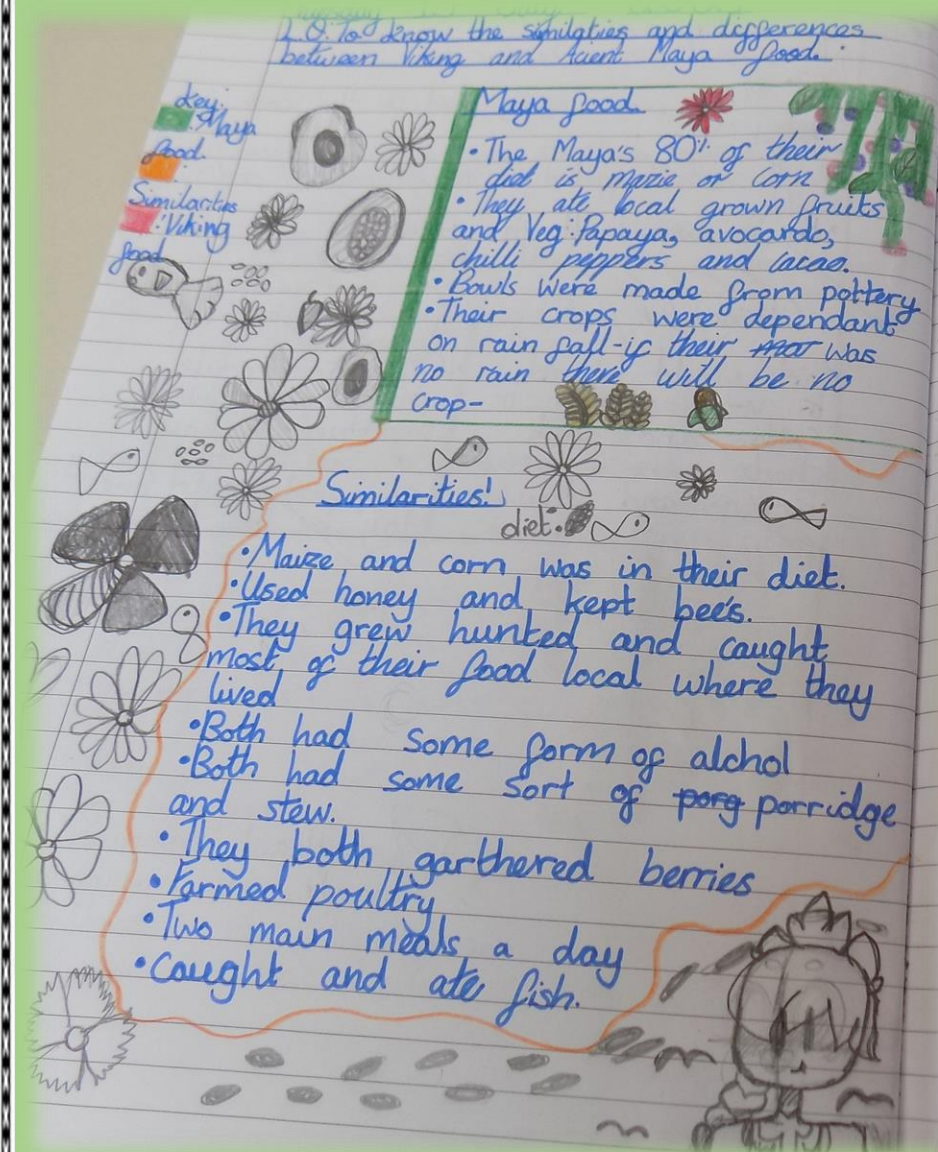 L.O: To know the similaties and differences
between Viking and Acient Maya food.
Key:
Maya
food.
Similarites
:Viking
food
Maya food.
• The Maya's 80% of their
diet is mazie or corn
• They ate local grown fruits
and Veg: Papaya, avocardo,
chilli peppers and cacao.
• Bowls were made from pottery
• Their crops were dependant
on rain fall-if their was
no rain there will be no
crop-
Similarities!
diet:
• Maize and corn was in their diet.
• Used honey and kept bee's.
• They grew hunted and caught
most of their food local where they
lived
• Both had some form of alchol
• Both had some sort of porg porridge
and stew.
• They both garthered berries
• Farmed poultry
• Two main meals a day
• Caught and ate fish.